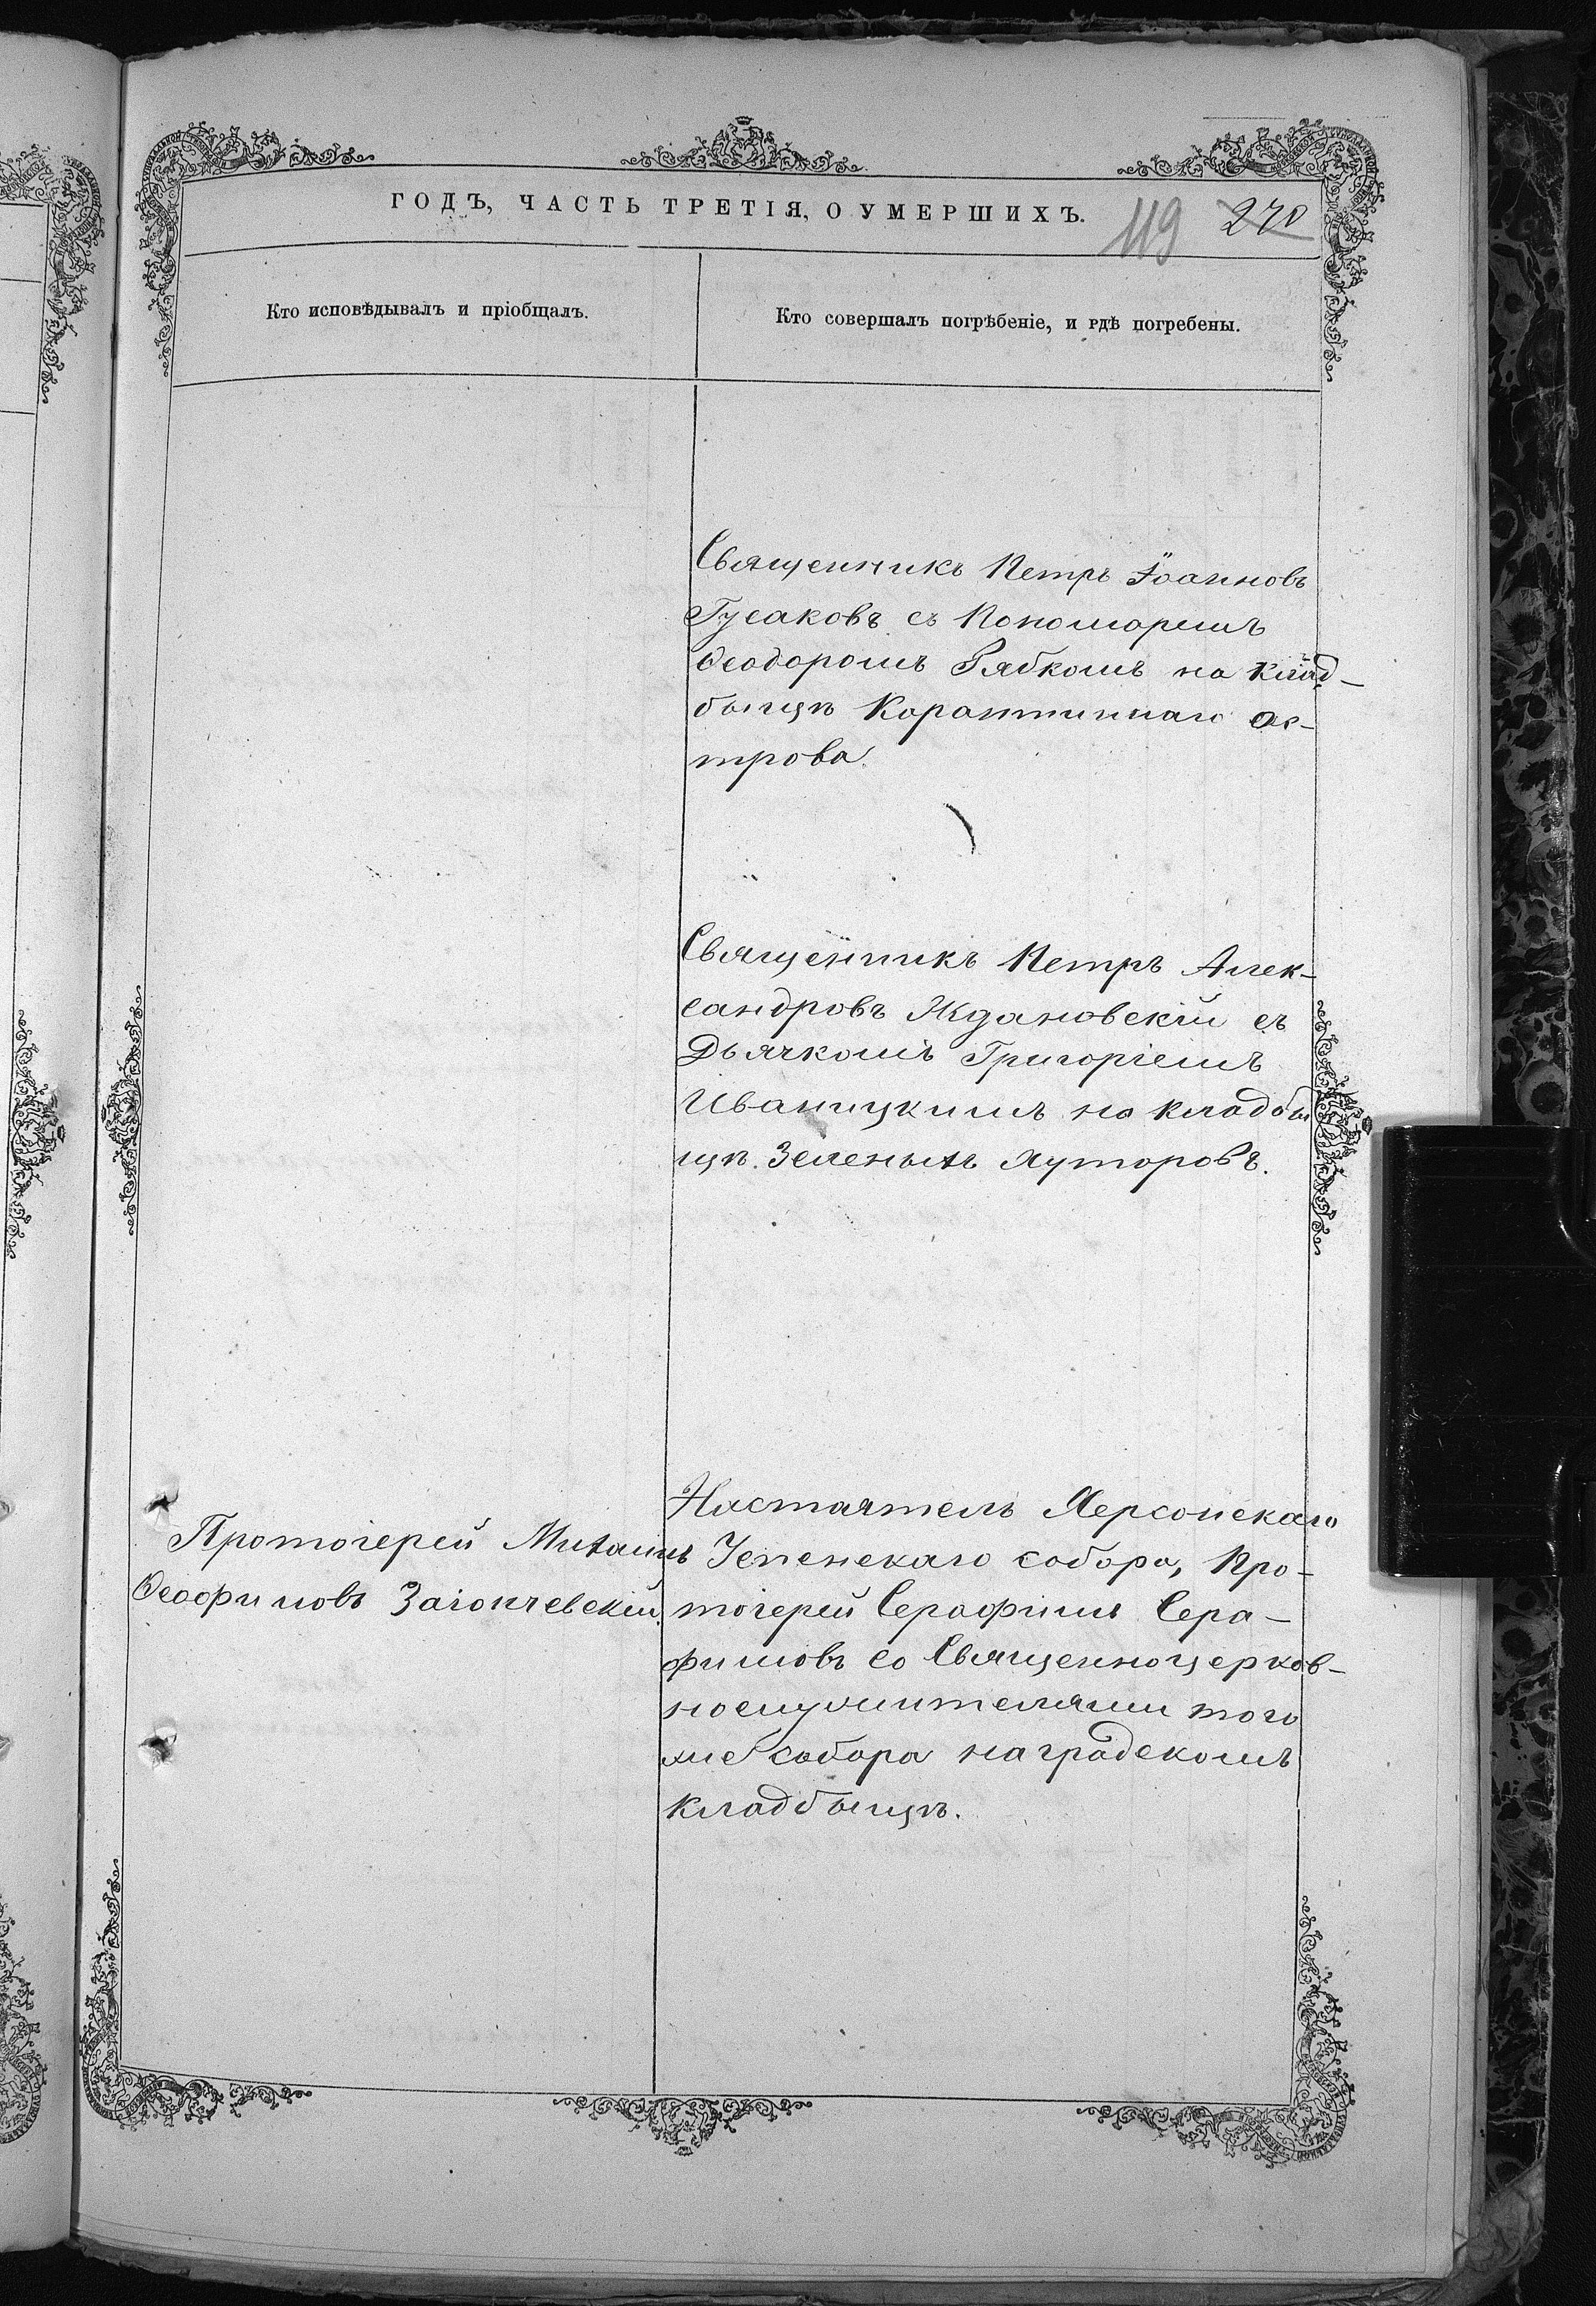 ГОДЪ, ЧАСТЬ ТРЕТІЯ, О УМЕРШИХЪ.
119 270
Кто исповѣдывалъ и пріобщалъ.
Кто совершалъ погрѣбеніе, и гдѣ погребены.
Священникъ Петръ Іоанновъ
Гусаковъ съ Пономаремъ
Ѳеодоромъ Рябкомъ на клад-
бищѣ Карантиннаго ос-
трова.
Священникъ Петръ Алек-
сандровъ Ждановскій съ
Дьячкомъ Григоріемъ
Иваницкимъ на кладби
щѣ Зеленыхъ Хуторовъ.
Протоіерей Михаилъ
Ѳеофиловъ Загоичевскій.
Настоятель Херсонскаго
Успенскаго собора, Про-
тоіерей Серафимъ Сера-
фимовъ со Священноцерков-
нослужителями того
же собора на градскомъ
кладбищѣ.